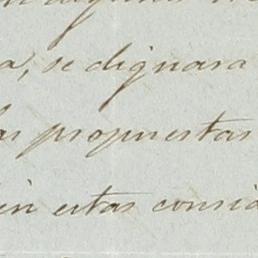 a, se dignara
las propuestas
en estas consid